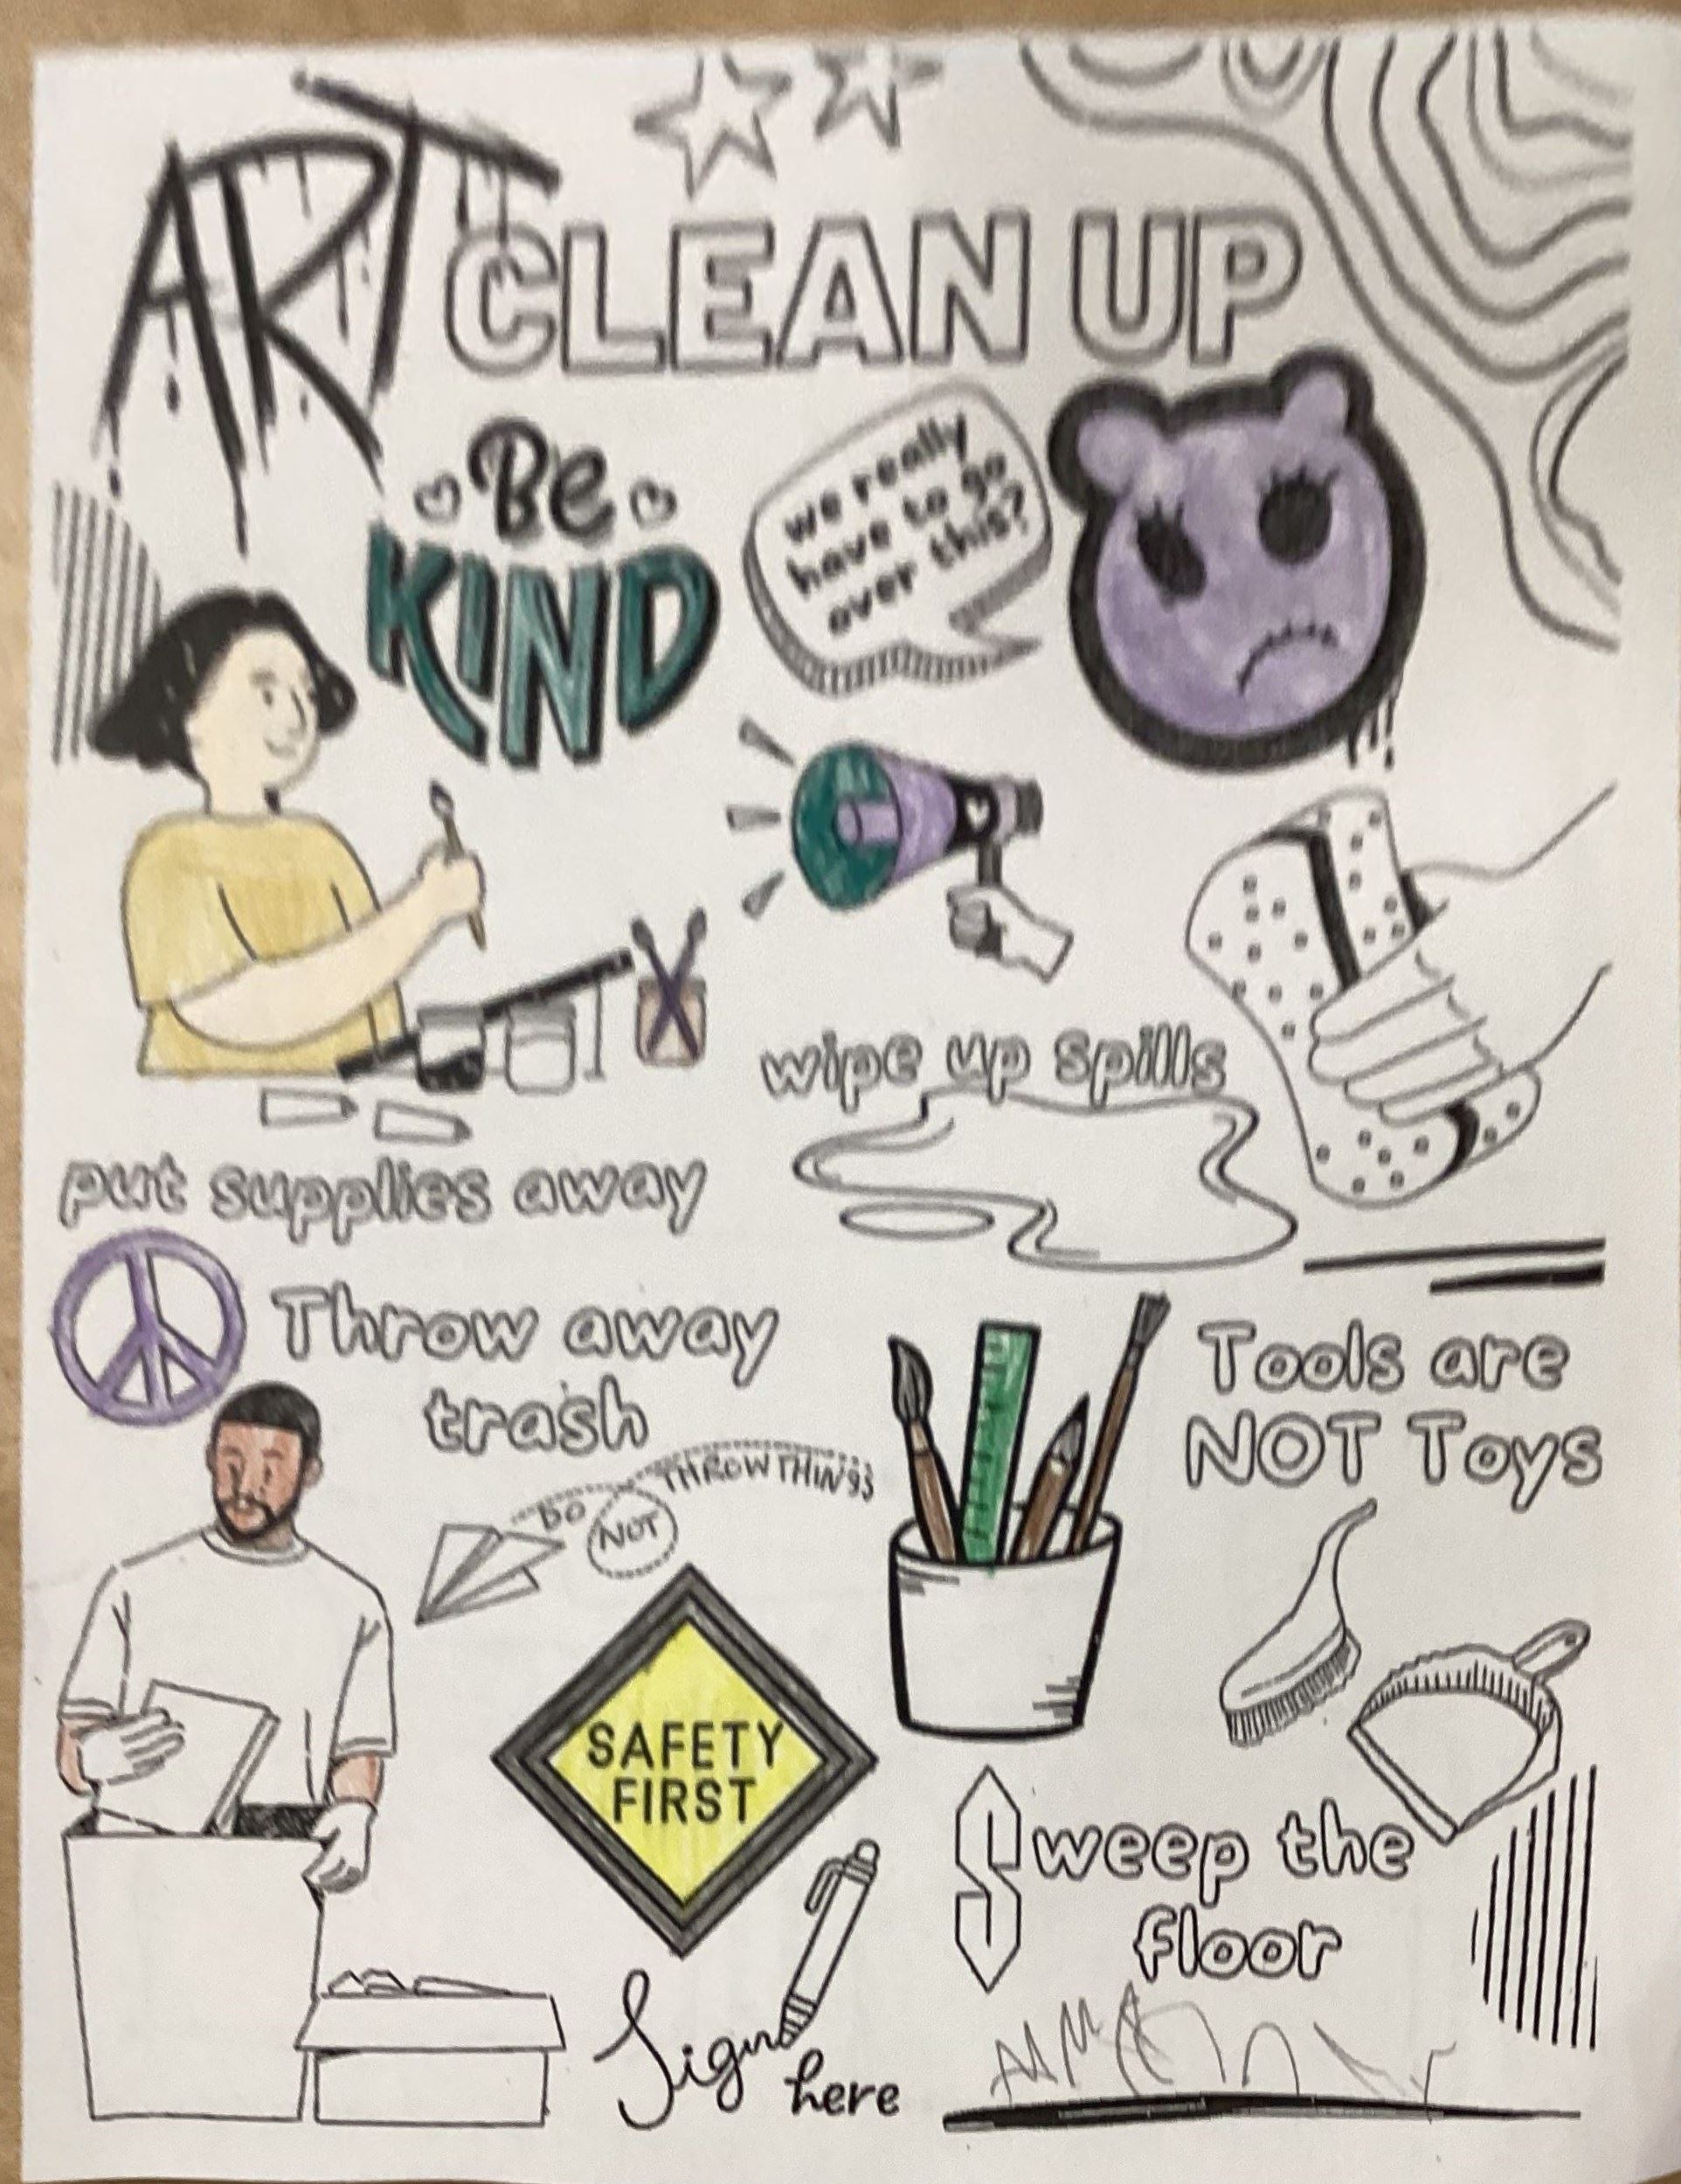 ART CLEAN UP
Be
KIND
we really
have to go
over this?
wipe up spills
put supplies away
Throw away
trash
DO NOT THROW THINGS
Tools are
NOT Toys
SAFETY
FIRST
Sweep the
floor
Sign
here